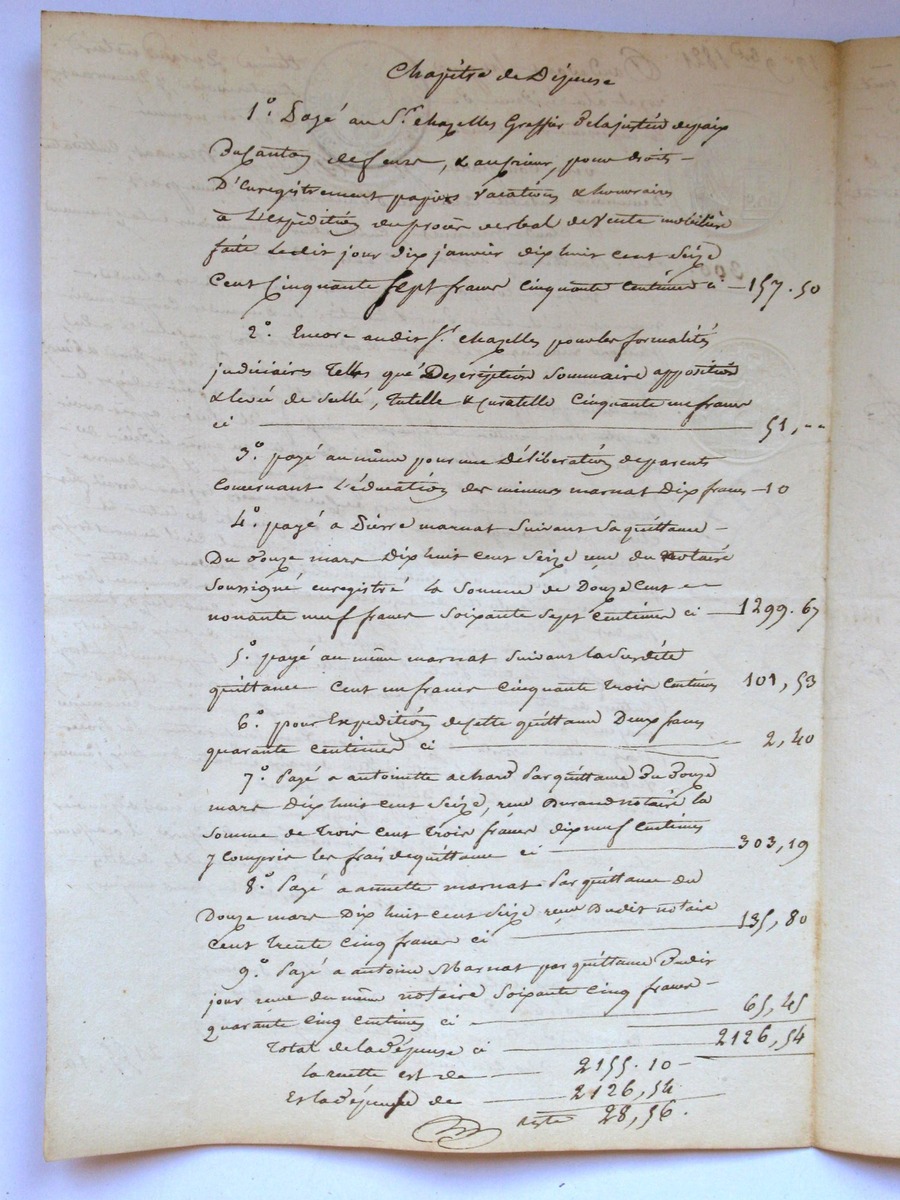 Chapitre de Dépense
1.° Payé au S.r chazelles Greffier de la justice de paix
Du Canton de , & au , pour droits –
D'Enregistrement papier vacations & honoraires
à L'expédition du procès verbal de vente mobiliére
faite Ledit jour dix janvier dix huit cent seize
Cent Cinquante sept francs Cinquante Centimes ci – 157.50
2.° Encore audit S.r chazelles pour les formalités
judiciaires telles que Description sommaire apposition
& levée de scellé, tutelle & Curatelle Cinquante un francs
ci 51,--
3.° payé au même pour une Déliberation de parents
Concernant L'éducation des mineurs marnat Dix francs – 10
4.° payé a Pierre marnat suivant sa quittance –
Du douze mars dix huit cent seize reçue du notaire
soussigné enregistré la somme de Douze Cent
nonante neuf francs soixante sept centimes ci – 1299.67
5.° payé au même marnat suivant la susdite
quittance Cent un francs Cinquante trois Centimes 101,53
6.° pour Expedition de cette quittance Deux francs
quarante Centimes ci 2,40
7.° Payé a antoinette achard Par quittance Du Douze
mars Dix huit cent Seize, reçue Durand notaire la
somme de trois cent trois francs dix neuf Centimes
y compris les frais de quittance ci 303,19
8.° Payé a annette marnat Par quittance du
Douze mars Dix huit cent Seize reçue Dudit notaire
Cent trente Cinq francs ci 135,80
9.° Payé a antoine Marnat par quittance Dudit
jour reçue du même notaire Soixante Cinq francs –
quarante Cinq Centimes ci 65,45
Total de la dépense ci 2126,54
la recette est de 2155.10 –
Et la dépense de 2126,54
reste 28,56.